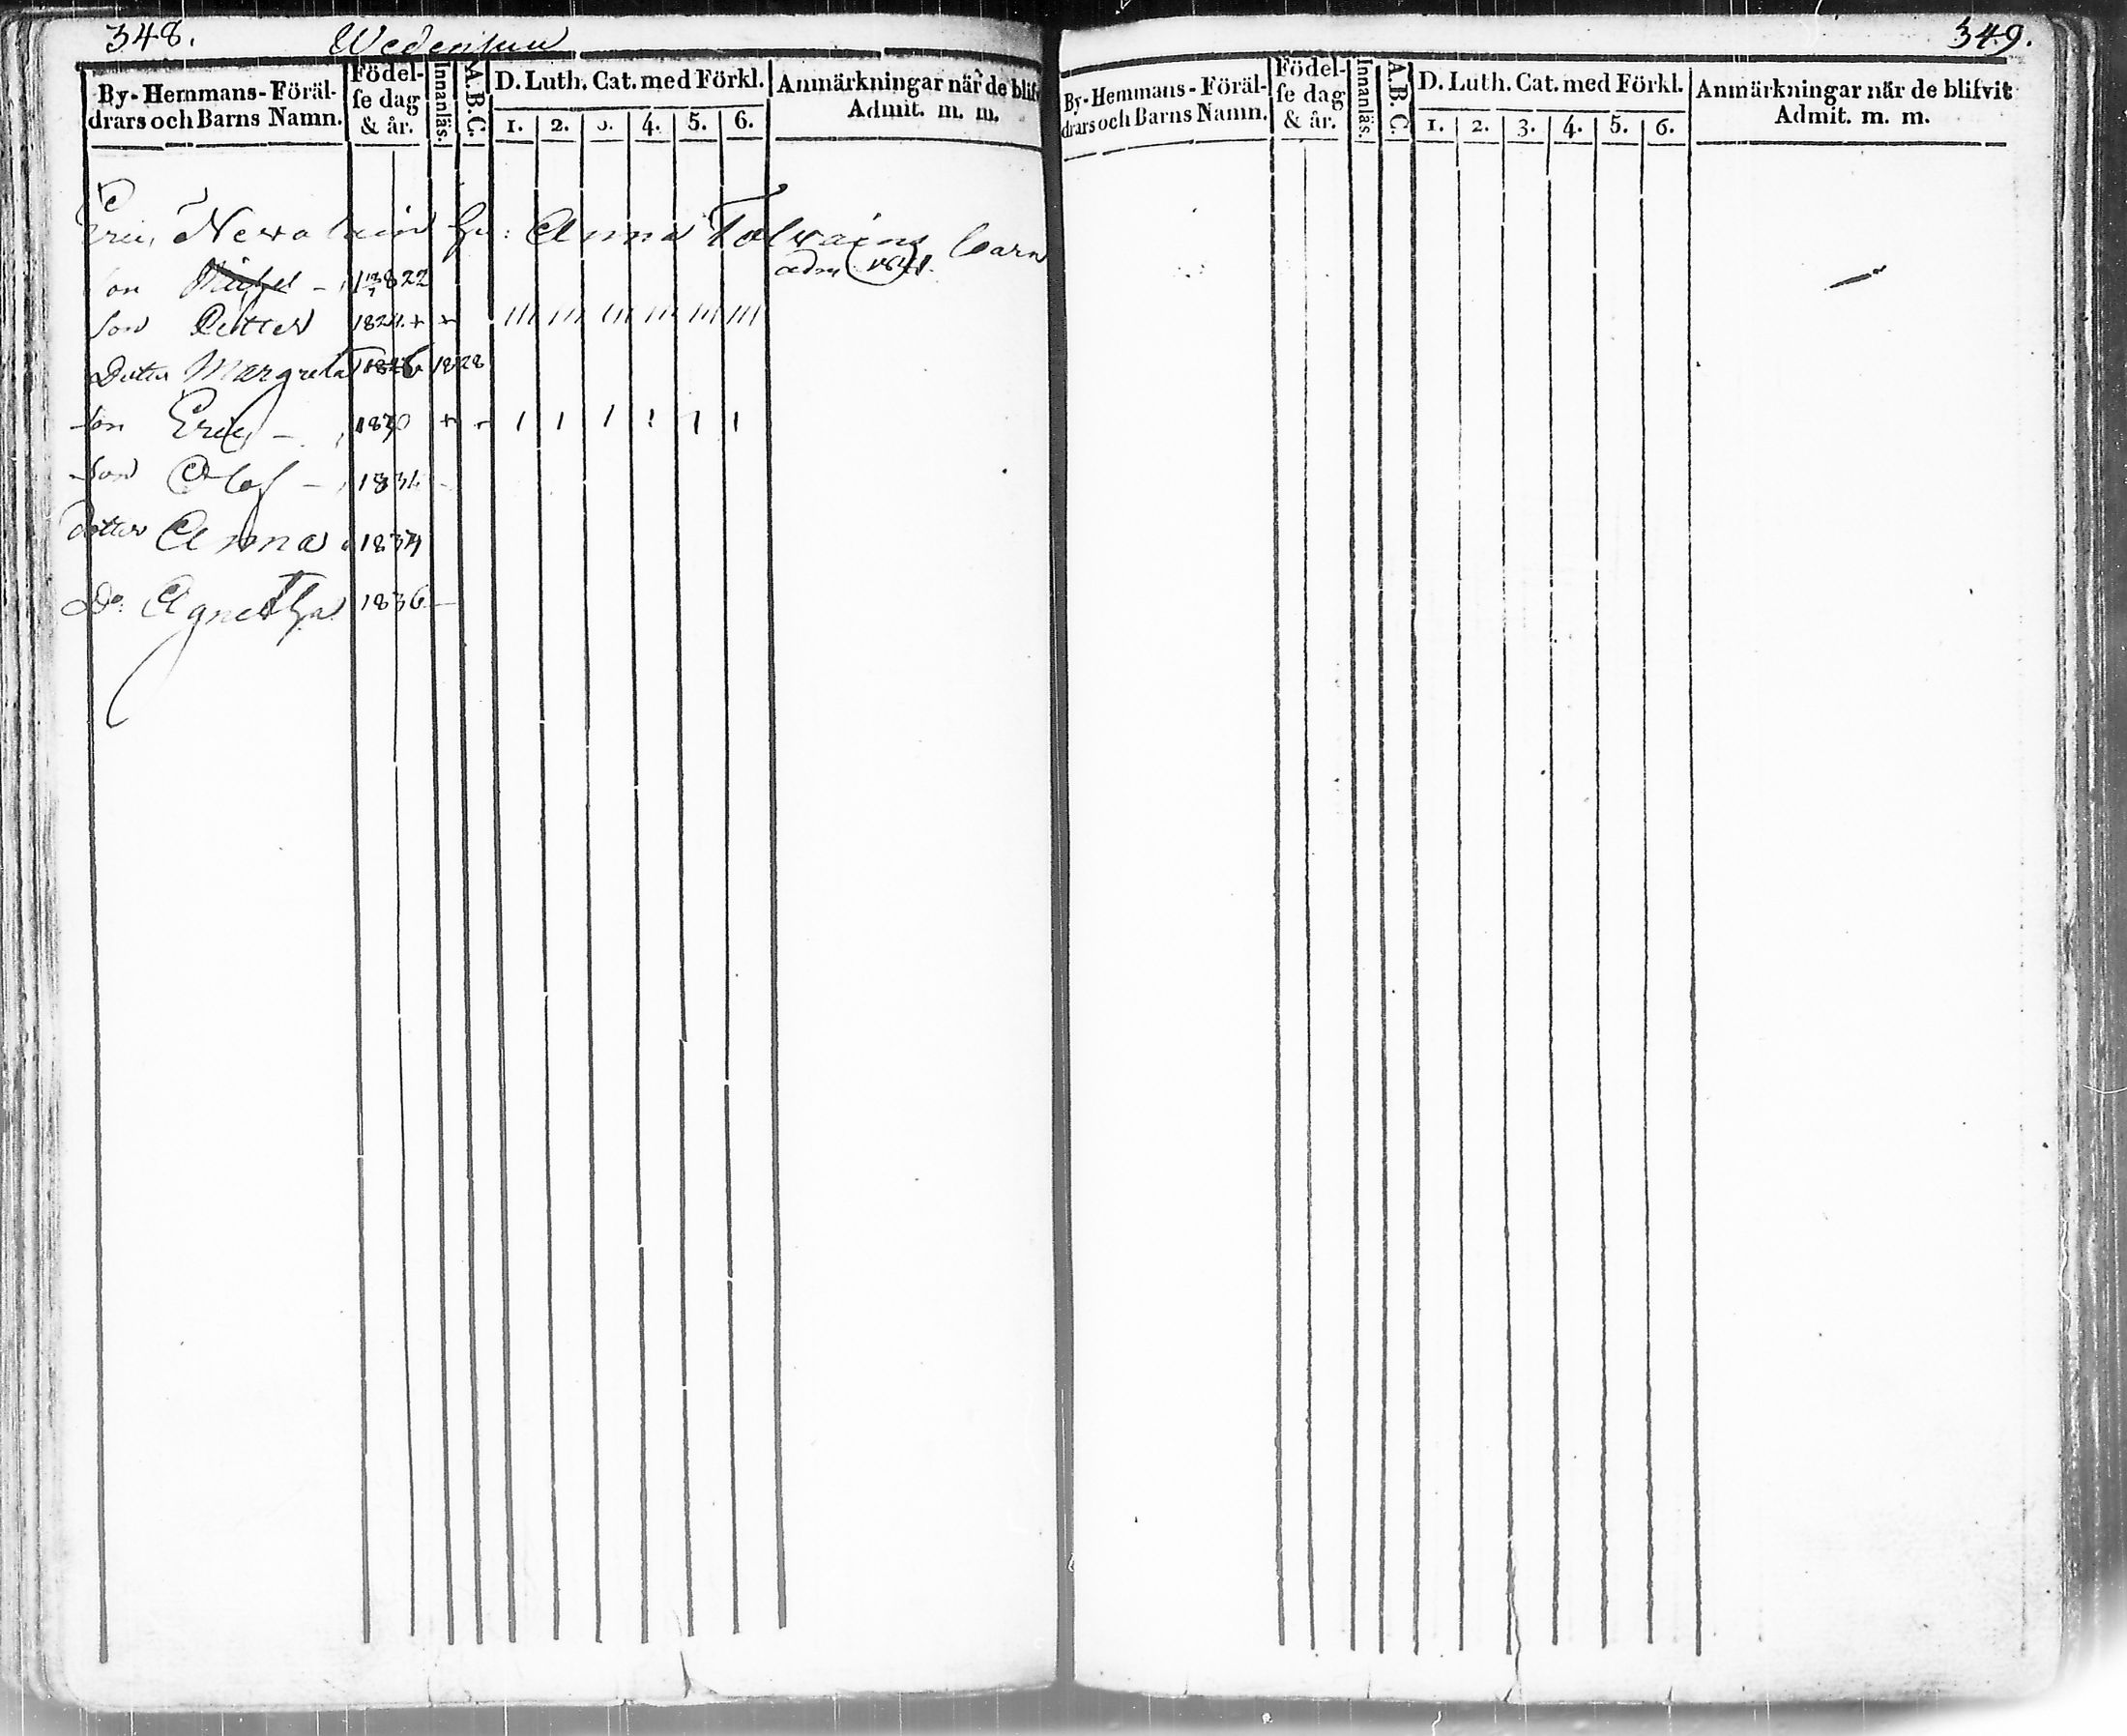 348. Wedensuu
By-Hemmans-Föräl-
drars och Barns Namn.
Födel-
se dag
& år.
Innanläs.
A.B.C.
D. Luth. Cat. med Förkl.
1. 2. 3. 4. 5. 6.
Anmärkningar när de blifv
Admit. m. m.
Eric Nevalain hu: Anna Tolvains barn
son Michel - 1822 adm 1841.
Son Petter 1824 + + III III III III III III
Dotter Margreta 1826 1828
Son Eric - 1830 + - I I I I I I
Son Olof - 183
dotter Anna 1834
Do: Agnetha 1836 -
349.
By-Hemmans-Föräl-
drars och Barns Namn.
Födel-
se dag
& år.
Innanläs.
A.B.C.
D. Luth. Cat. med Förkl.
1. 2. 3. 4. 5. 6.
Anmärkningar när de blifvit
Admit. m. m.